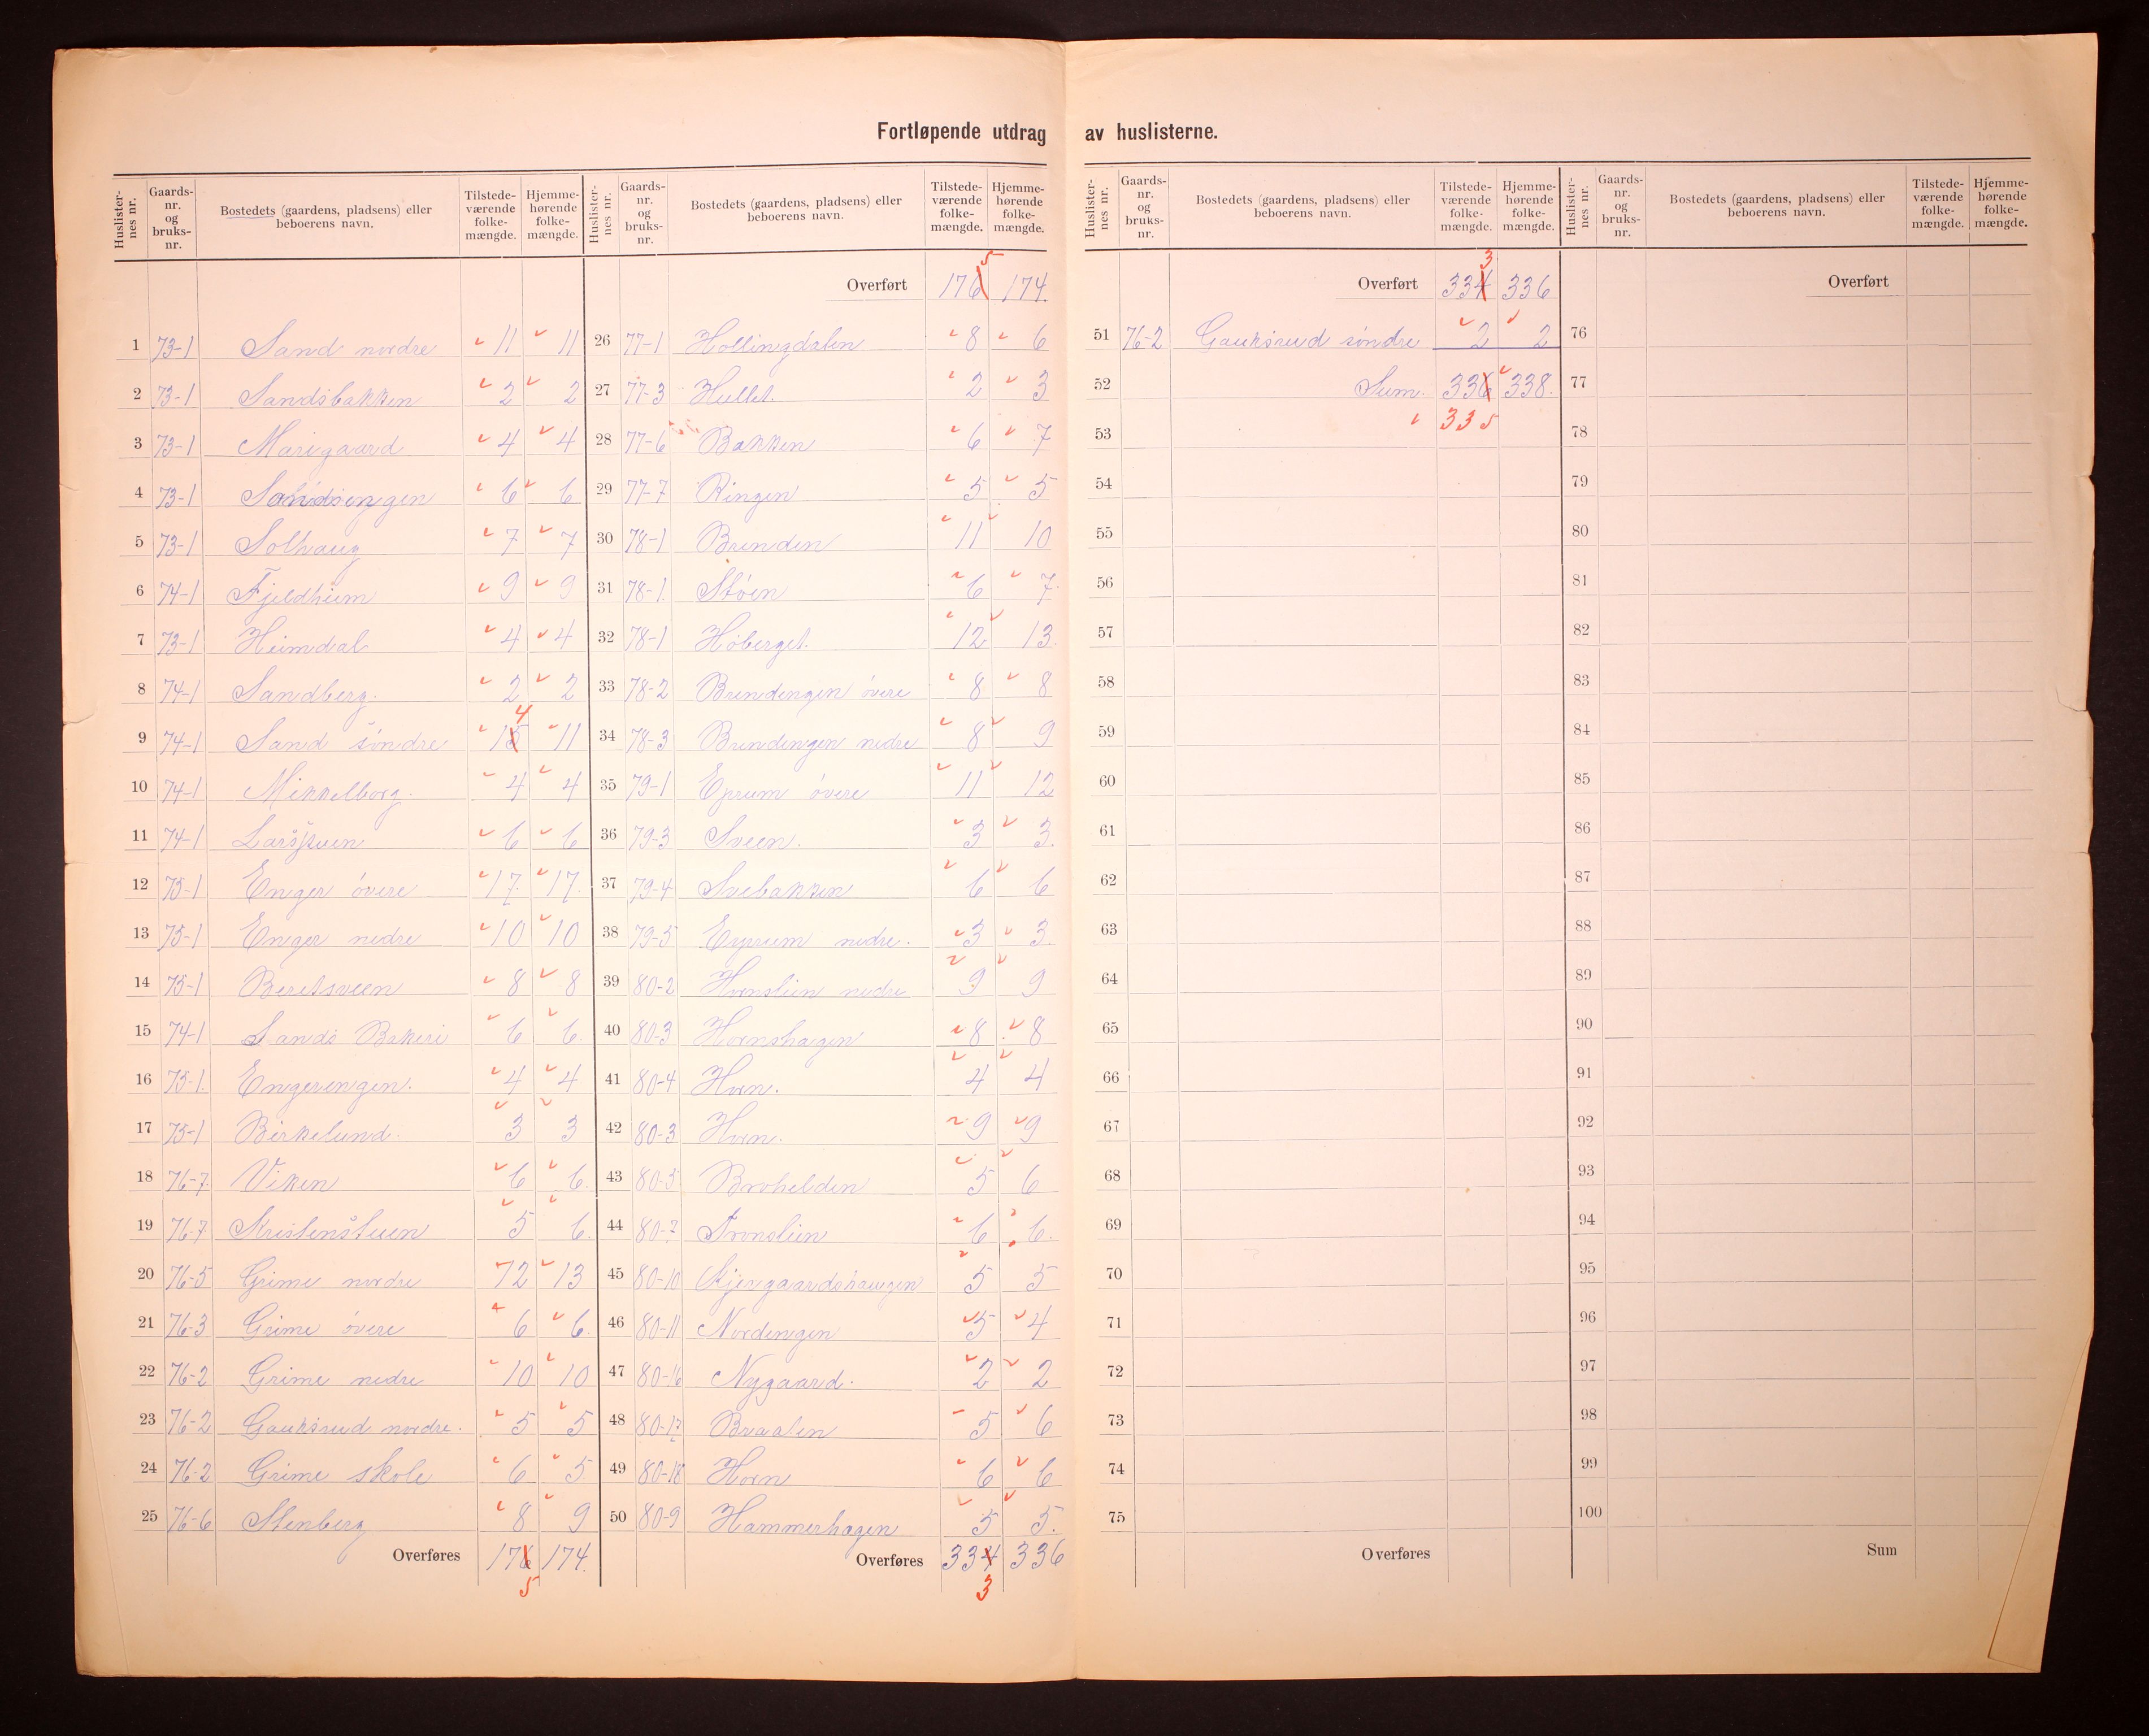 Fortløpende utdrag av huslisterne.
Huslisternes nr. Gaards-nr. og bruks-nr. Bostedets (gaardens, pladsens) eller beboerens navn. Tilstedeværende folkemængde. Hjemmehørende folkemængde.
1 73-1 Sand nordre 11 11
2 73-1 Sandsbakken 2 2
3 73-1 Marigaard 4 4
4 73-1 Sandsengen 6 6
5 73-1 Solhaug 7 7
6 74-1 Fjeldheim 9 9
7 73-1 Heimdal 4 4
8 74-1 Sandberg. 2 2
9 74-1 Sand søndre 15 4 11
10 74-1 Mikkelborg. 4 4
11 74-1 Larsstuen 6 6
12 75-1 Enger øvere 17. 17.
13 75-1 Enger nedre 10 10
14 75-1 Beretsveen 8 8
15 74-1 Sands Bakeri 6 6
16 75-1. Engerengen. 4 4
17 75-1 Birkelund. 3 3
18 76-7. Viken 6 6.
19 76-7 Kristenstuen 5 6.
20 76-5 Grime nordre 12 13
21 76-3 Grime øvere 6 6.
22 76-2 Grime nedre 10 10
23 76-2 Gauksrud nordre. 5 5
24 76-2 Grime skole 6 5
25 76-6 Stenberg 8 9
Overføres 176 174.
5
Huslisternes nr. Gaards-nr. og bruks-nr. Bostedets (gaardens, pladsens) eller beboerens navn. Tilstedeværende folkemængde. Hjemmehørende folkemængde.
5
Overført 176 174.
26 77-1 Hollingdalen 8 6
27 77-3 Hullet. 2 3
28 77-6 Bakken 6 7
29 77-7 Ringen 5 5
30 78-1 Brenden 11 10
31 78-1. Støen 6 7.
32 78-1 Høberget. 12 13.
33 78-2 Brendengen øvere 8 8
34 78-3 Brendengen nedre 8 9
35 79-1 Eprum øvere 11 12
36 79-3 Sveen. 3 3.
37 79-4 Svebakken 6 6
38 79-5 Eprum nedre. 3 3.
39 80-2 Hornslien nedre 9 9
40 80-3 Hornshagen 8 8
41 80-4 Horn. 4 4
42 80-3 Horn. 9 9
43 80-5 Brohelden 5 6
44 80-7 Tronslien 6 6.
45 80-10 Kjersgaardshaugen 5 5
46 80-11 Nordengen 5 4
47 80-16 Nygaard. 2 2
48 80-17 Braalen 5 6
49 80-18 Horn 6 6
50 80-9 Hammerhagen 5 5.
Overføres 334 336
3
Huslisternes nr. Gaards-nr. og bruks-nr. Bostedets (gaardens, pladsens) eller beboerens navn. Tilstedeværende folkemængde. Hjemmehørende folkemængde.
3
Overført 334 336
51 76-2 Gauksrud søndre 2 2
52 Sum. 336 338.
53 335
54
55
56
57
58
59
60
61
62
63
64
65
66
67
68
69
70
71
72
73
74
75
Overføres
Huslisternes nr. Gaards-nr. og bruks-nr. Bostedets (gaardens, pladsens) eller beboerens navn. Tilstedeværende folkemængde. Hjemmehørende folkemængde.
Overført
76
77
78
79
80
81
82
83
84
85
86
87
88
89
90
91
92
93
94
95
96
97
98
99
100
Sum